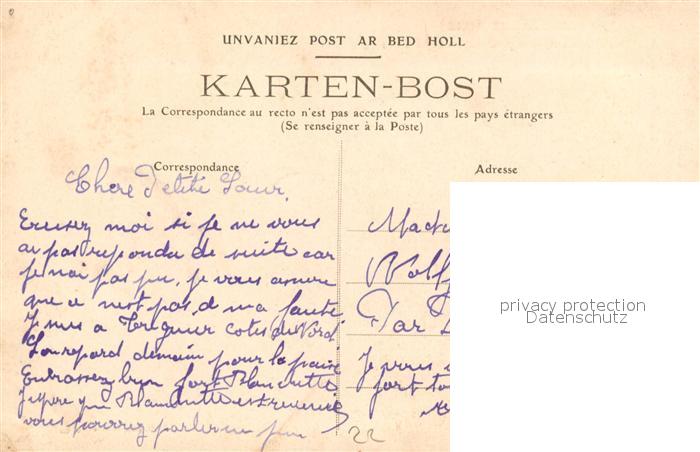 UNVANIEZ POST AR BED HOLL
KARTEN-BOST
La Correspondance au recto n'est pas acceptée par tous les pays étrangers
(Se renseigner à la Poste)
Correspondance
Chere Petite Soeur.
Excusez moi si je ne vous
ai pas repondu de suite car
je nai pas pu, je vous assure
que ce nest pas d ma faute
Je suis a Treguier cotes du Nord
demain pour la
Embrassez bien fort Blanchette
Jespere que est
vous pourrez parler un peu
Adresse
Mad
Wolf
Par
Je vous
fort
22
privacy protection
Datenschutz